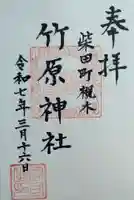 奉拝
柴田町槻木
竹原神社
令和七年三月十六日